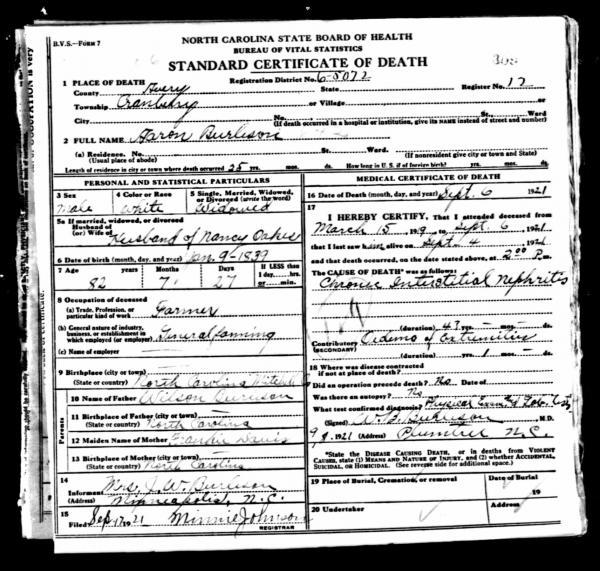 NORTH CAROLINA STATE BOARD OF HEALTH
B.V.S.—FORM 7
BUREAU OF VITAL STATISTICS
STANDARD CERTIFICATE OF DEATH
1 PLACE OF DEATH Registration District No. 6-5072
County Avery State Register No. 17
Township Cranberry or Village
City No. St., Ward
(If death occurred in a hospital or institution, give its NAME instead of street and number)
2 FULL NAME Aaron Burleson
(a) Residence. No. St. Ward
(Usual place of abode) (If nonresident give city or town and State)
Length of residence in city or town where death occurred 25 yrs. mos. ds. How long in U. S. if of foreign birth? yrs. mos. ds.
PERSONAL AND STATISTICAL PARTICULARS
3 Sex 4 Color or Race 5 Single, Married, Widowed, or Divorced (write the word)
Male White Widowed
5a If married, widowed, or divorced
Husband of
(or) Wife of Husband of Nancy Oakes
6 Date of birth (month, day, and year) Jan 9-1839
7 Age Years Months Days If LESS than 1 day, hrs. or min.
82 7 27
8 Occupation of deceased
(a) Trade, Profession, or particular kind of work Farmer
(b) General nature of industry, business, or establishment in which employed (or employer) General farming
(c) Name of employer
9 Birthplace (city or town)
(State or country) North Carolina Mitchell
Parents
10 Name of Father Wilson Burleson
11 Birthplace of Father (city or town)
(State or country) North Carolina
12 Maiden Name of Mother Frankie Davis
13 Birthplace of Mother (city or town)
(State or country) North Carolina
14
Informant Mrs. J. W. Burleson
(Address) Minneapolis, N.C.
15
Filed Sep 17 1921 Minnie Johnson
REGISTRAR
MEDICAL CERTIFICATE OF DEATH
16 Date of Death (month, day, and year) Sept. 6 1921
17
I HEREBY CERTIFY, That I attended deceased from
March 15, 19 to Sept. 6, 1921
that I last saw him alive on Sept. 4, 1921
and that death occurred, on the date stated above, at 2:00 P.m.
The CAUSE OF DEATH* was as follows:
Chronic Interstitial Nephritis
(duration) yrs. mos. ds.
Contributory Oedema of Extremities
(SECONDARY)
(duration) yrs. 1 mos. ds.
18 Where was disease contracted
if not at place of death?
Did an operation precede death? No Date of
Was there an autopsy? No
What test confirmed diagnosis? Physical Exam &
(Signed) M.D.
1921 (Address) Plumtree N.C.
*State the DISEASE CAUSING DEATH, or in deaths from VIOLENT CAUSES, state (1) MEANS AND NATURE OF INJURY, and (2) whether ACCIDENTAL, SUICIDAL, OR HOMICIDAL. (See reverse side for additional space.)
19 Place of Burial, Cremation, or removal Date of Burial
19
20 Undertaker